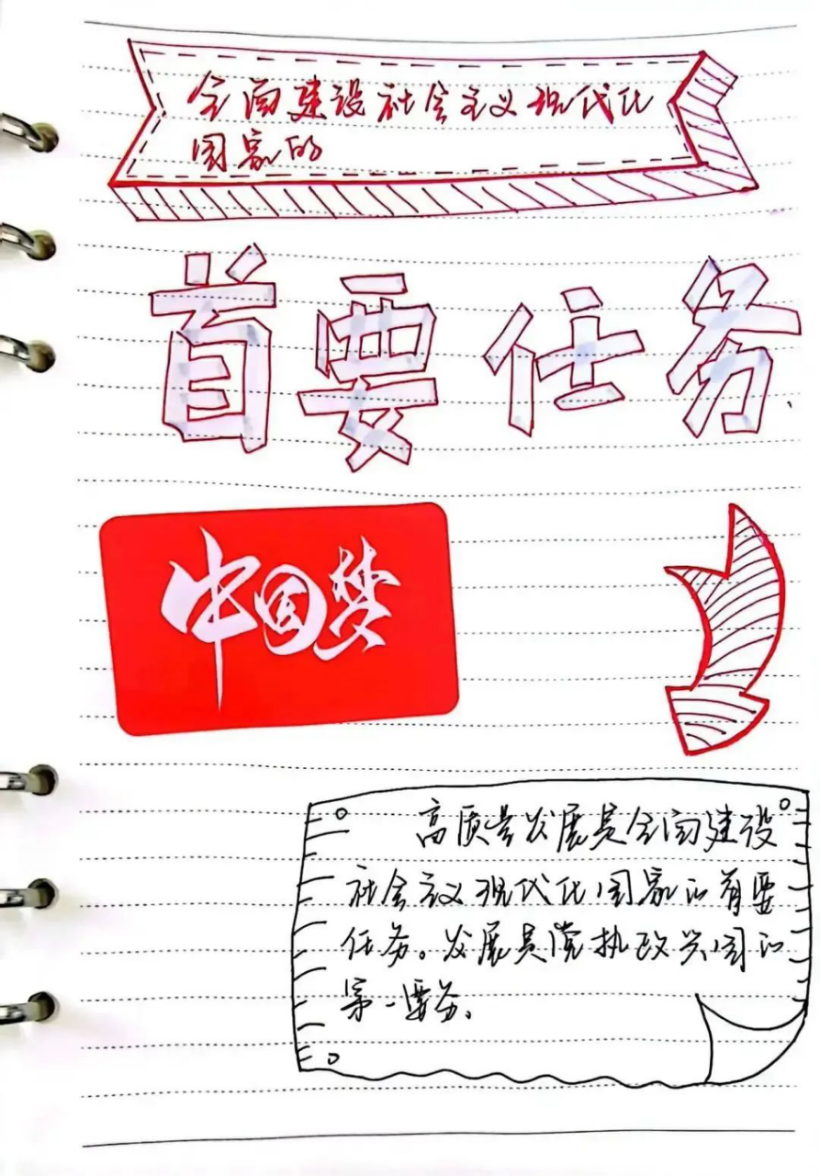 全面建设社会主义现代化
国家的
首要任务
中国梦
高质量发展是全面建设
社会主义现代化国家的首要
任务。发展是党执政兴国的
第一要务。